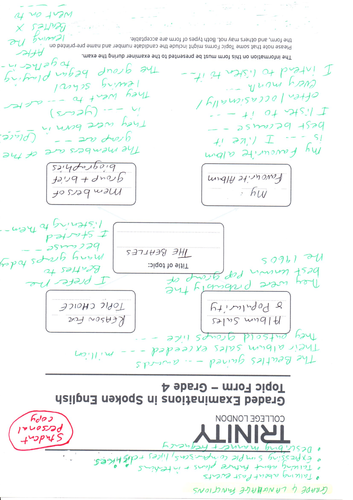 GRADE 4 LANGUAGE FUNCTIONS
• Talking about Past events
• Talking about future plans & intentions
• Expressing simple comparisons, likes, reasons, choices
• Describing manner & frequency
TRINITY
COLLEGE LONDON
Student
personal
copy
Graded Examinations in Spoken English
Topic Form – Grade 4
The Beatles gained --- awards
Their album sales exceeded --- million
They outsold groups like ---
Album Sales
& Popularity
REASON FOR
TOPIC CHOICE
They were probably the
best known pop group of
the 1960s
I prefer the
Beatles to
many groups today
because ---
I started
listening to them --
Title of topic:
THE BEATLES
My
Favourite Album
Members of
group + brief
biographies
My favourite album
is --- I like it
best because ---
I listen to it ---
often / occasionally /
every month
I intend to listen to it --
The members are of the
group are ---
They were born in (place)
in --- (years)
They went to --- after
leaving school
The group began playing
together in ---
After
leaving the
Beatles X
went on to
The information on this form must be presented to the examiner during the exam.
Please note that some Topic Forms might include the candidate number and name pre-printed on
the form, and others may not. Both types of form are acceptable.